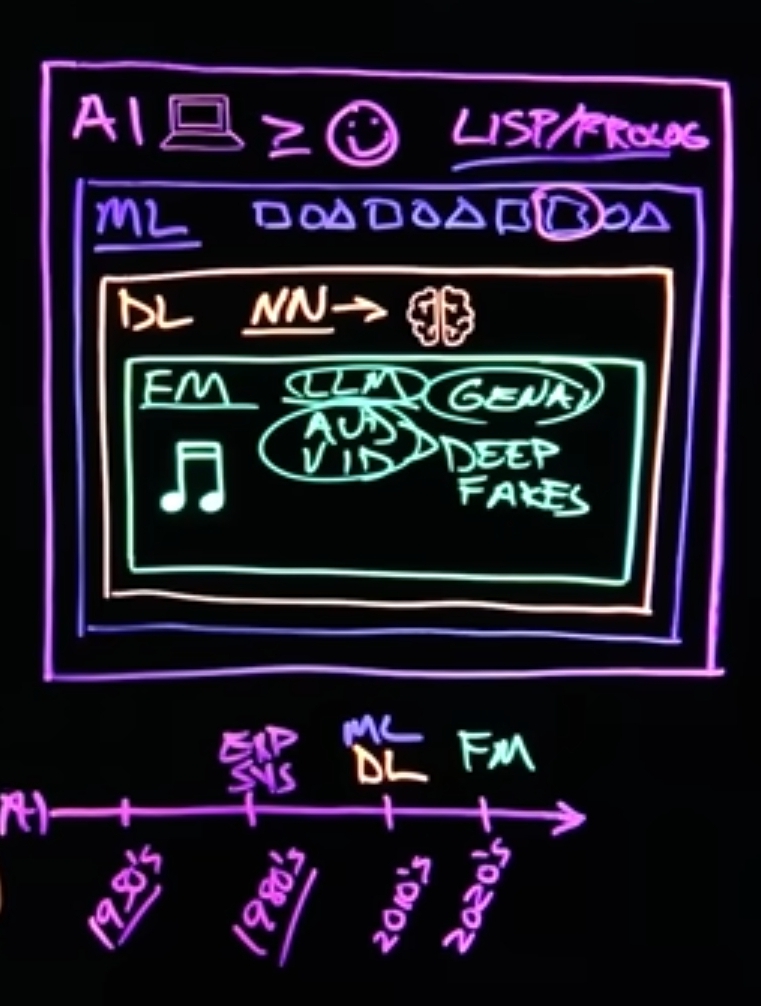 AI ≥ LISP/PROLOG
ML
DL NN →
FM LLM GENAI
AUD
VID DEEP
FAKES
EXP
SYS
ML
DL
FM
1950's 1980's 2010's 2020's